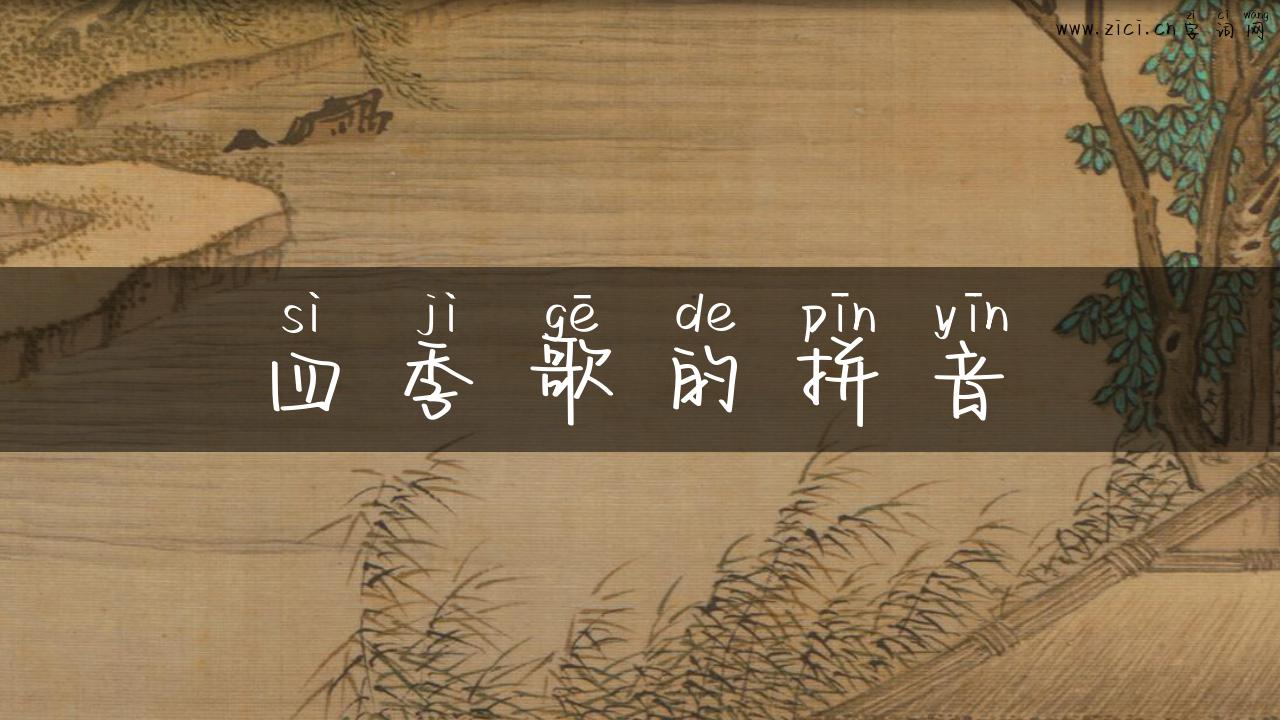 zì cí wǎng
www.zici.cn 字词网
sì jì gē de pīn yīn
四季歌的拼音